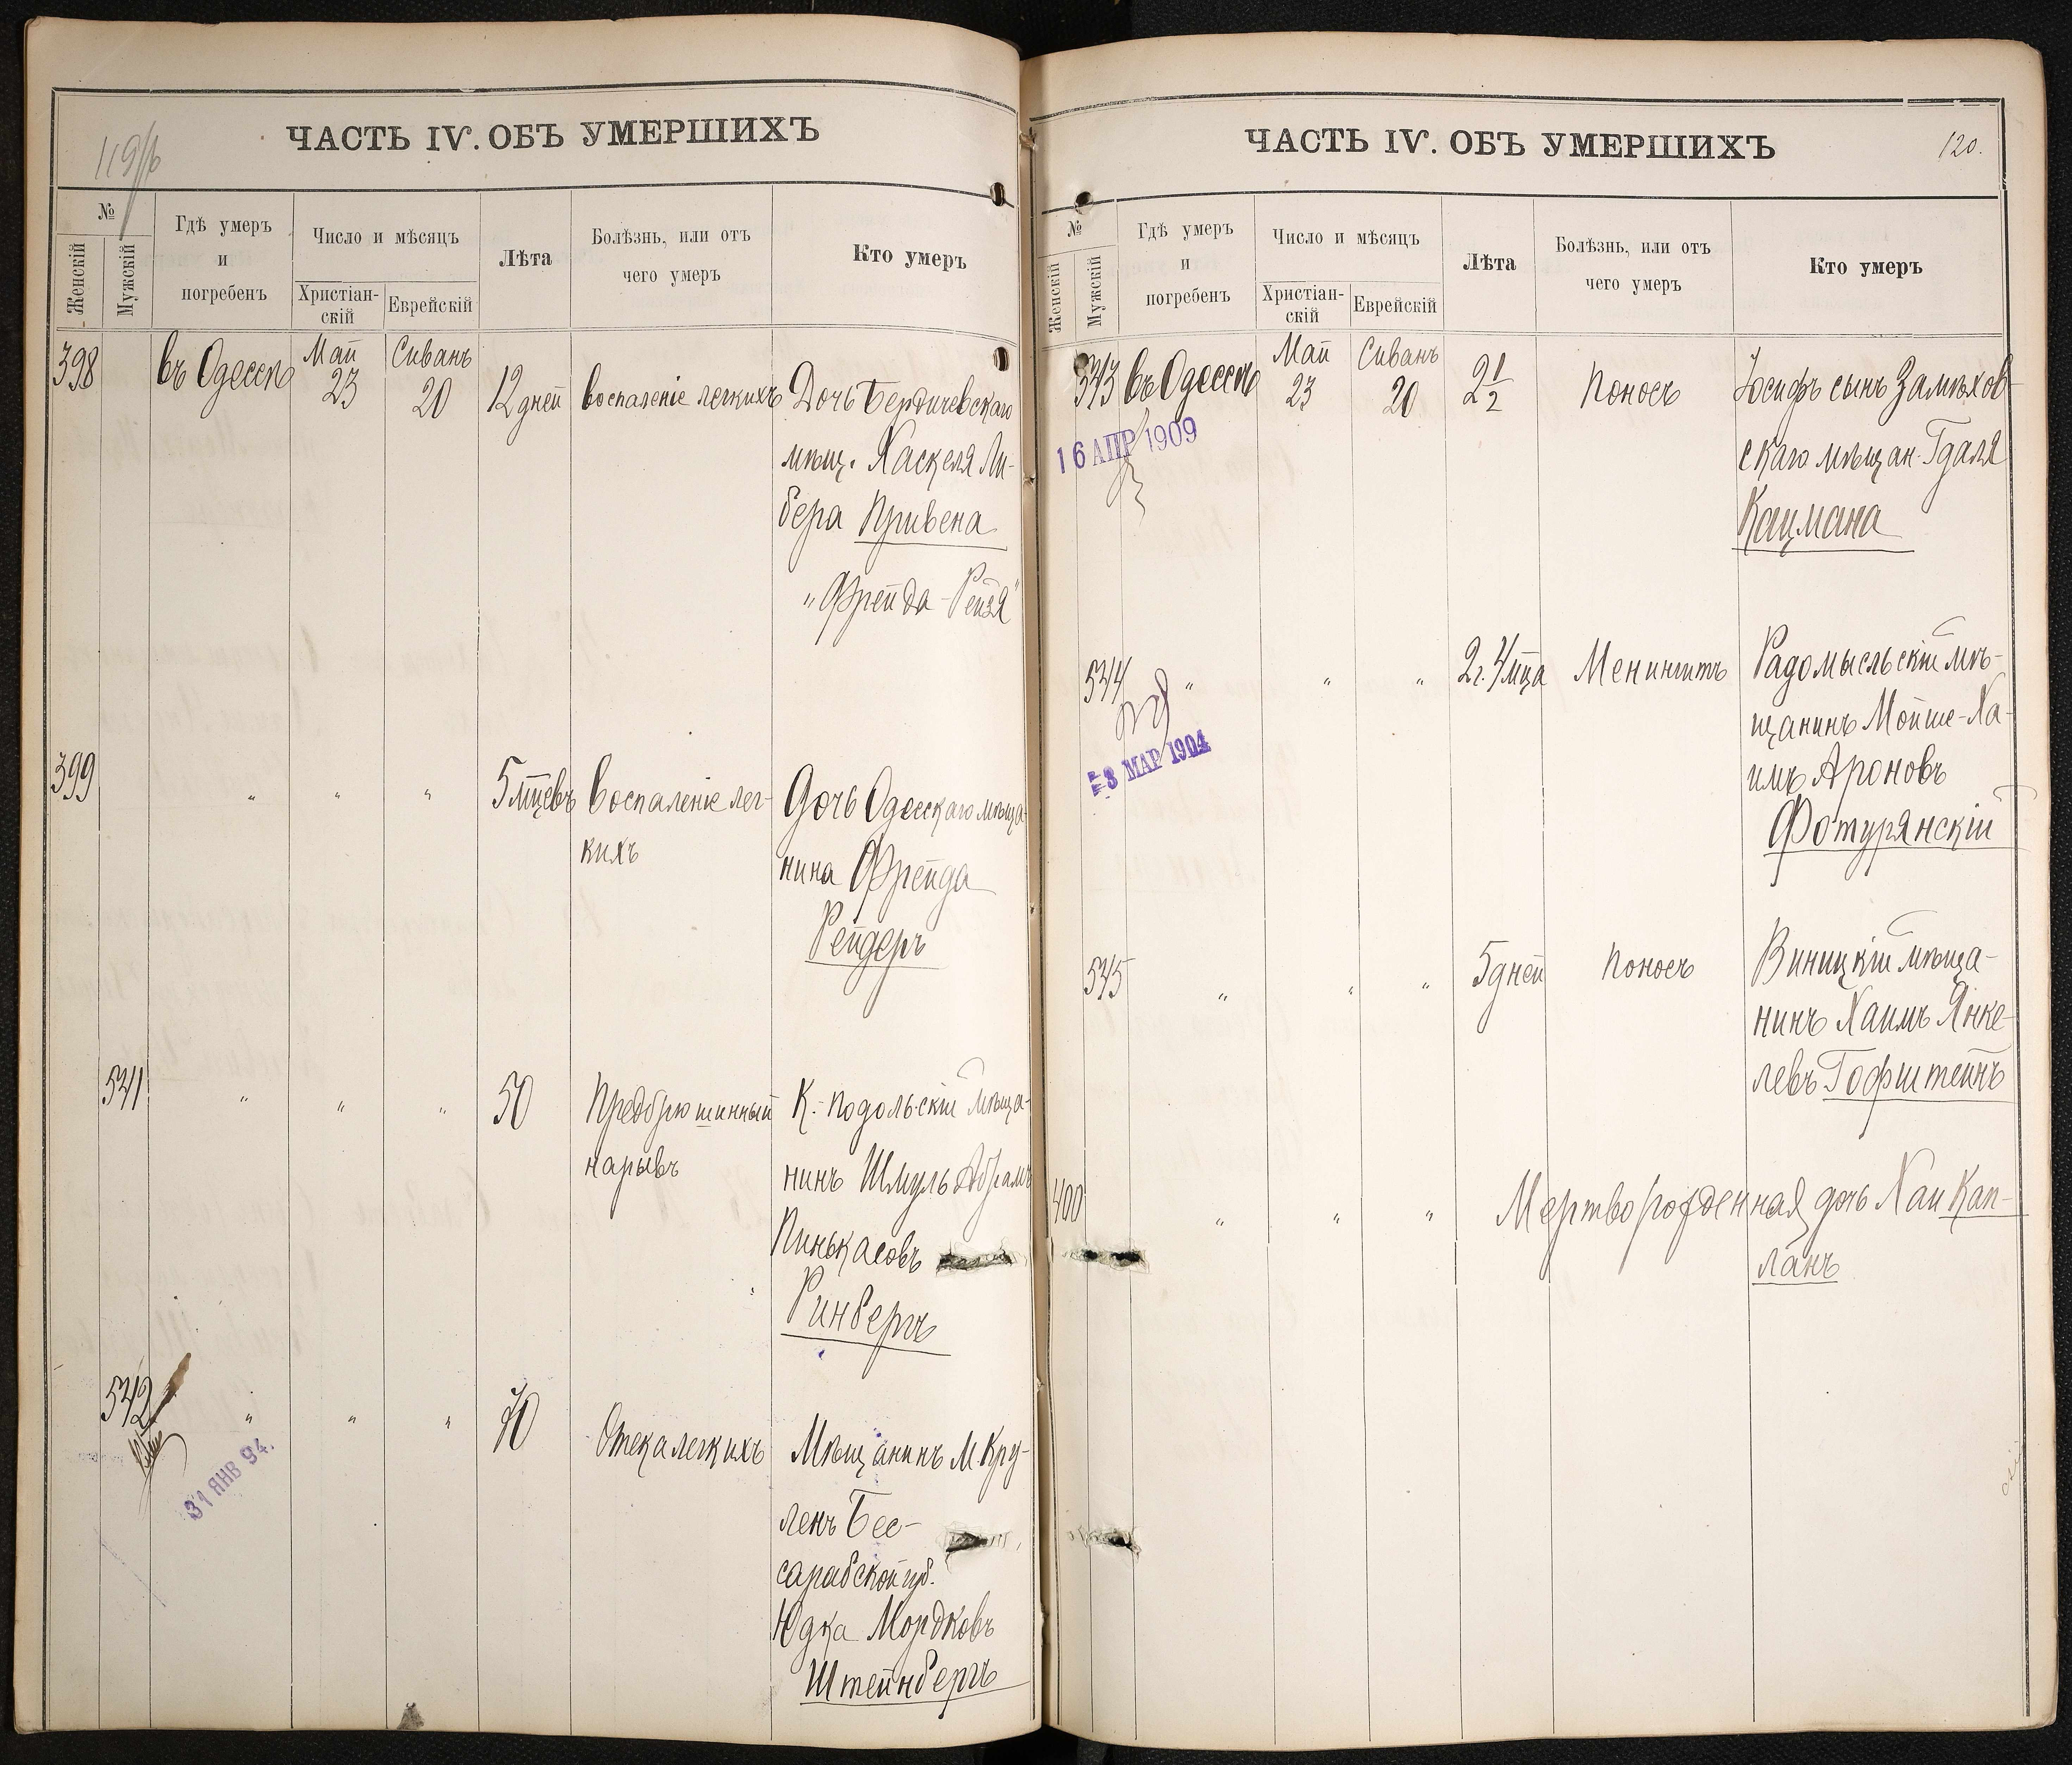 119/об
ЧАСТЬ IV. ОБЪ УМЕРШИХЪ
№
Женскій
Мужскій
Гдѣ умеръ
и
погребенъ
Число и мѣсяцъ
Христіан-
скій
Еврейскій
Лѣта
Болѣзнь, или отъ
чего умеръ
Кто умеръ
398 въ Одессѣ Май 23 Сиванъ 20 12 дней воспаленіе легкихъ Дочь Бердичевскаго
мѣщ. Хаскеля Ли-
бера Кривена
"Фрейда-Рейзя"
399 " " " 5 мцевъ Воспаленіе лег- Дочь Одесскаго мѣща-
кихъ нина Фрейда
Рейдеръ
541 " " " 50 Предбрюшинный К.-подольскій мѣща-
нарывъ нинъ Шмуль Абрамъ
Пинькасовъ
Ринбергъ
542 " " " 70 Отека легкихъ Мѣщанинъ м. Кру-
31 ЯНВ 94.
ленъ Бес-
сарабской губ.
Юдка Мордковъ
Штейнбергъ
120.
ЧАСТЬ IV. ОБЪ УМЕРШИХЪ
№
Женскій
Мужскій
Гдѣ умеръ
и
погребенъ
Число и мѣсяцъ
Христіан-
скій
Еврейскій
Лѣта
Болѣзнь, или отъ
чего умеръ
Кто умеръ
543 въ Одессѣ Май 23 Сиванъ 20 2 1/2 Поносъ Іосифъ сынъ Замѣхов-
16 АПР 1909
скаго мѣщан. Гдаля
Кацмана
544 " " " 2 г. 4 мца Менингитъ Радомысльскій мѣ-
3 МАР 1904
щанинъ Мойше-Ха-
имъ Ароновъ
Фотурянскій
545 " " " 5 дней Поносъ Виницкій мѣща-
нинъ Хаимъ Янке-
левъ Гофштейнъ
400 " " " Мертворожденная дочь Хаи Кап-
ланъ